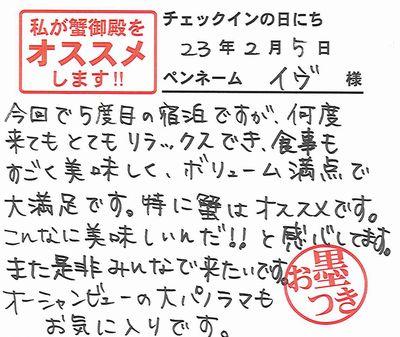 私が蟹御殿を
オススメ
します!!
チェックインの日にち
23年2月5日
ペンネーム イヴ 様
今回で5度目の宿泊ですが、何度
来てもとてもリラックスでき、食事も
すごく美味しく、ボリューム満点で
大満足です。特に蟹はオススメです。
こんなに美味しいんだ!!と感心してます。
また是非みんなで来たいです。
オーシャンビューの大パノラマも
お気に入りです。
お墨
つき